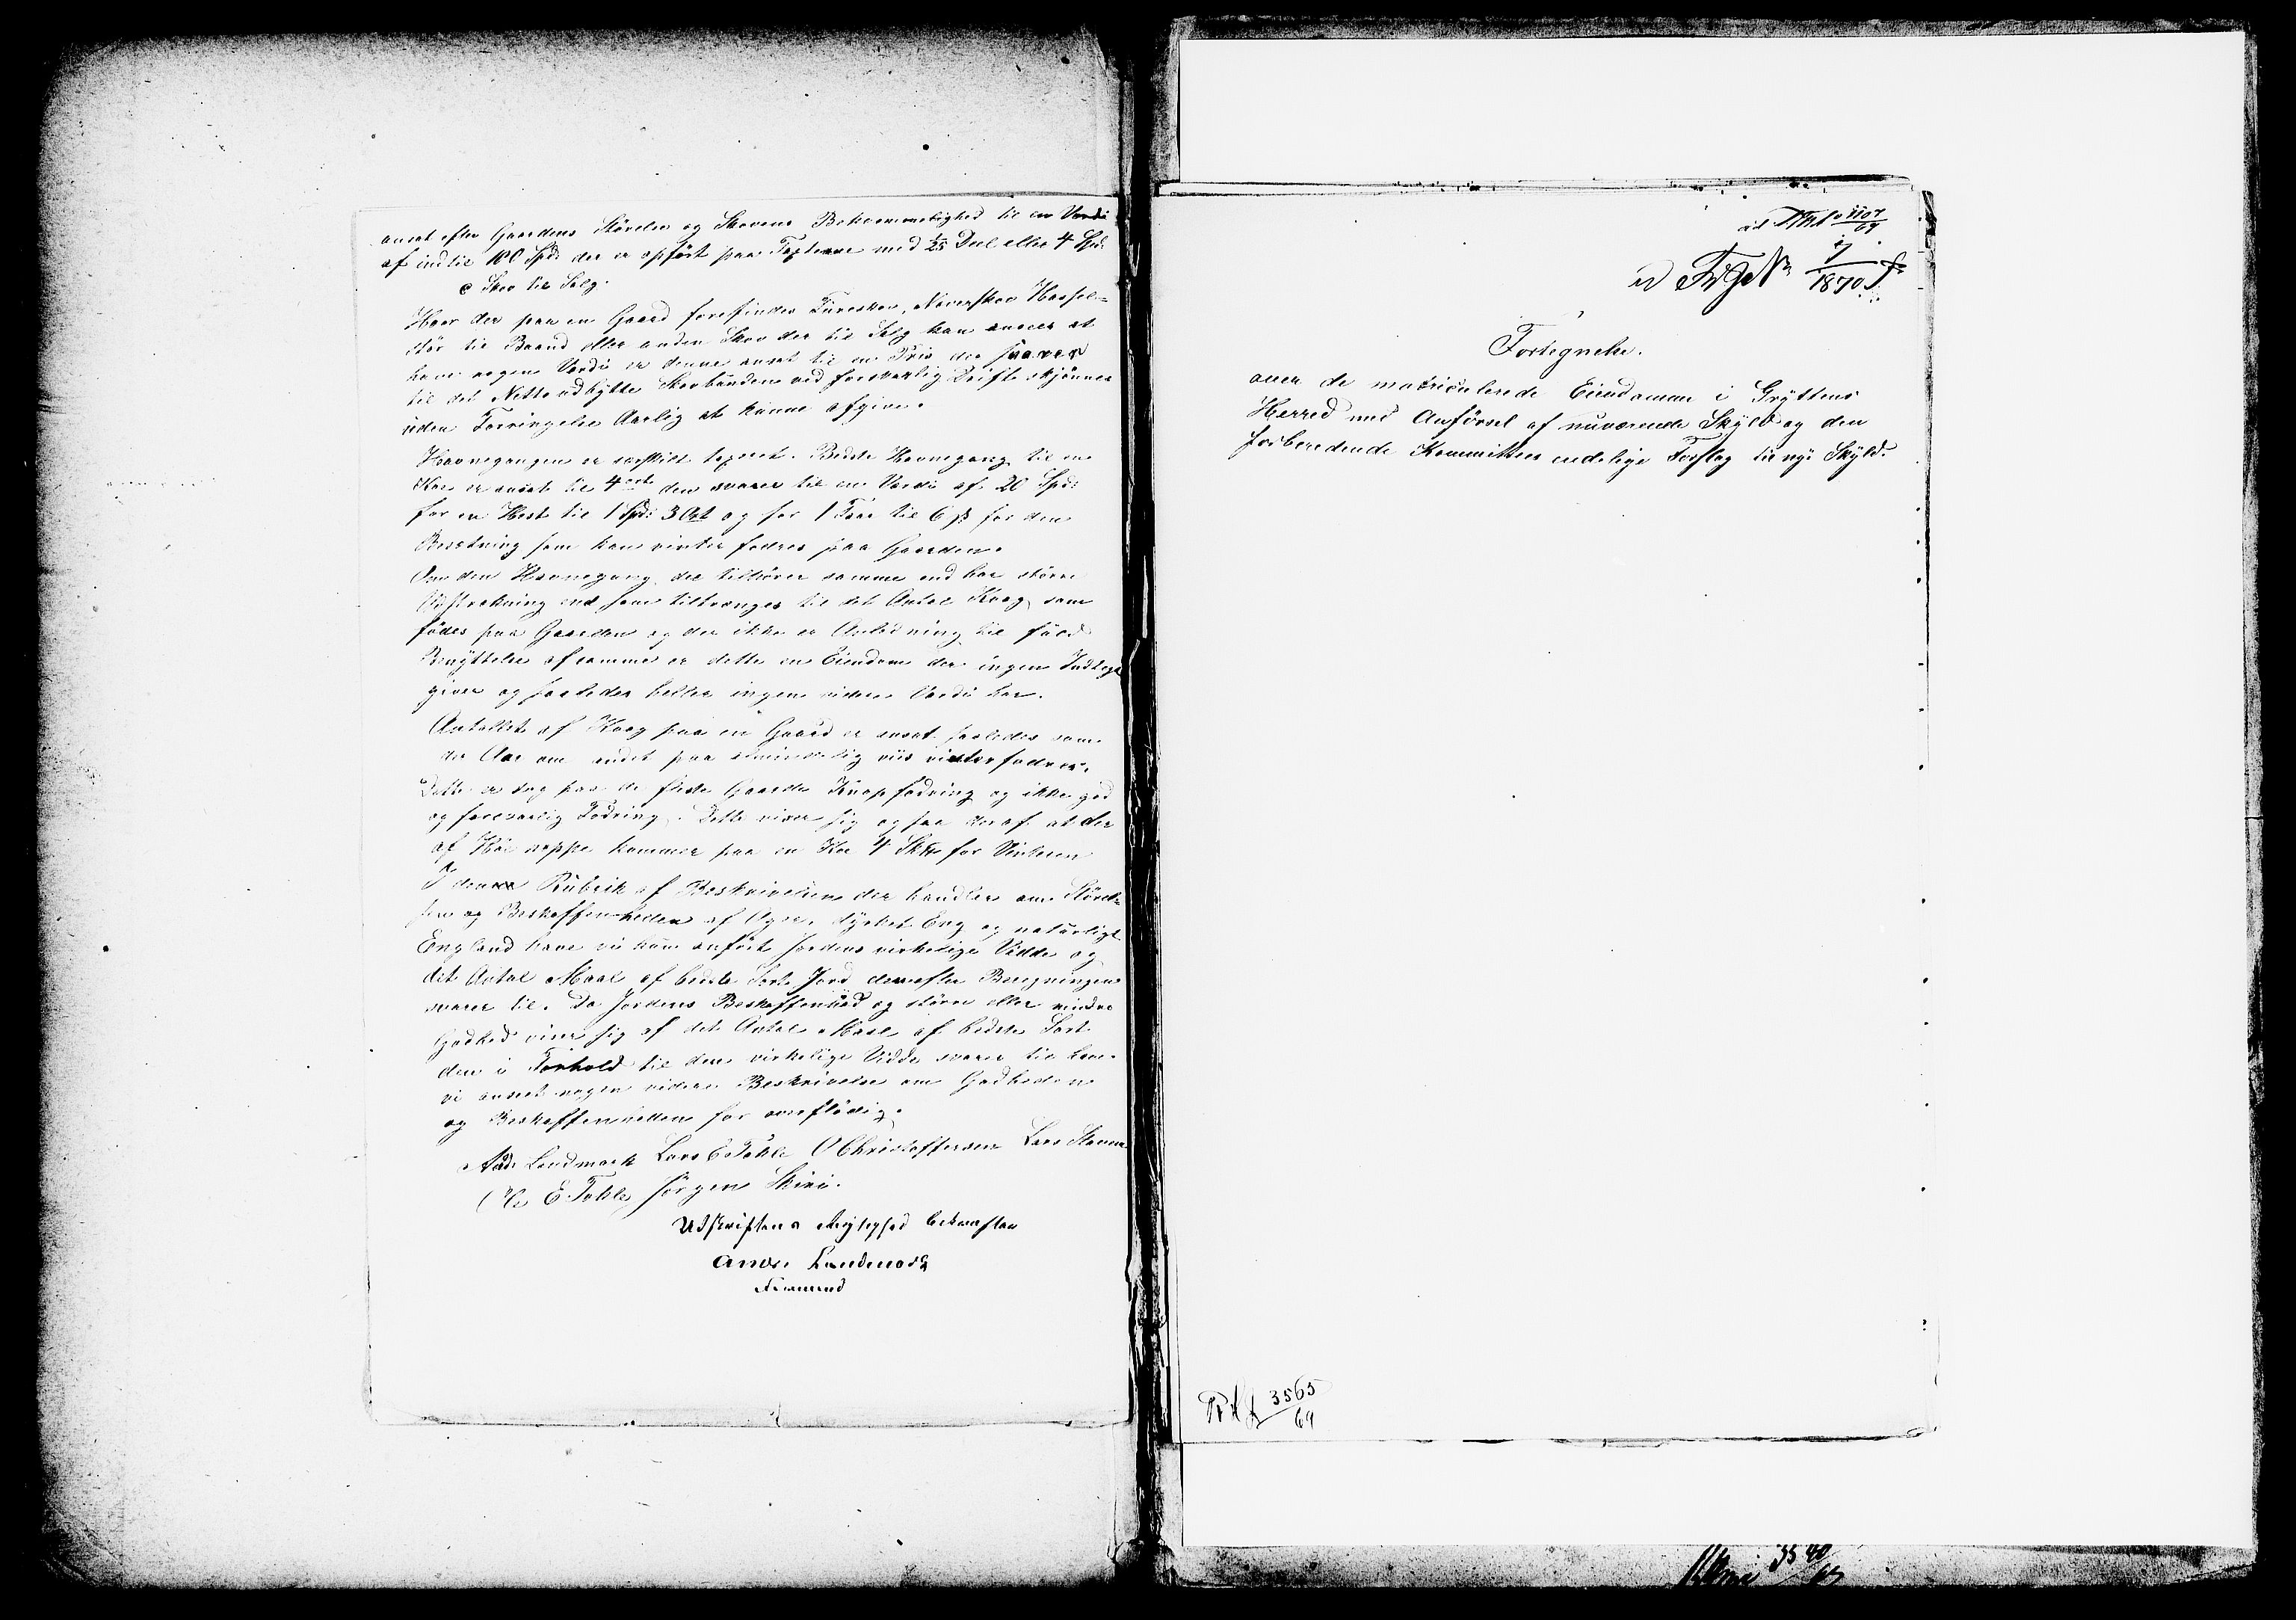 ansat efter Gaardens Störelse og Skovens Bekvemmelighed til en Værdi
af indtil 100 Spd: der er opfört paa Taxterne med 1/25 Deel eller 4 Spd:
c Skov til Salg.
Hvor der paa en Gaard forefindes Fureskov, Næverskov Hassel-
stör til Baand eller anden Skov der til Salg kan ansees at
have nogen Værdi er denne ansat til en Pris der svarer
til det Netto udbytte Skovbunden ved forsvarlig Drift skjönnes
uden Forringelse Aarlig at kunne afgive.
Havnegangen er særskilt taxeret. Bedste Havnegang til en
Koe er ansat til 4 ort den svarer til en Værdi af 20 Spd:
for en Hest til 1 Spd: 3 Ort og for 1 Faar til 6 ß for den
Besætning som kan vinter fodres paa Gaarden.
Om den Havnegang der tilhörer samme end har större
Udstrækning end som tiltrænges til det Antal Kreag som
födes paa Gaarden og der ikke er Anledning til fuld
Benyttelse af samme er dette en Eiendom der ingen Indtægt
giver og saaledes heller ingen videre Værdi har.
Antallet af Kreag paa en Gaard er ansat saaledes som
der Aar om andet paa almindelig viis vinterfodres.
Dette er dog paa de fleste Gaarde Knap fodring og ikke god
og forsvarlig Fodring. Dette viser sig ogsaa deraf at der
af Höe neppe kommer paa en Koe 4 Sk℔ for Vinteren
I denne Rubrik af Beskrivelsen der handler om Störel-
sen og Beskaffenheden af Ager, dyrket Eng og naturligt
England have vi kun anfört Jordens virkelige Vidde og
det Antal Maal af bedste Sort Jord den efter Beregningen
svarer til. Da Jordens Beskaffenhed og större eller mindre
Godhed viser sig af det Antal Maal af bedste Sort
den i Forhold til den virkelige Vidde svarer til have
vi anseet nogen videre Beskrivelse om Godheden
og Beskaffenheden for overflödig.
Ands Landmark Lars E Tokle O Christoffersen Lars Stavem
Ole E. Tokle Jörgen Skiri.
Udskriftens Rigtighed bekræfter
Anders Landmark
Formand
ad 1107/69
ad 7/1870
Fortegnelse.
over de matriculerede Eiendomme i Gryttens
Herred med Anförsel af nuværende Skyld og den
forberedende Kommittees endelige Forslag til ny Skyld.
3565/69
3540/69